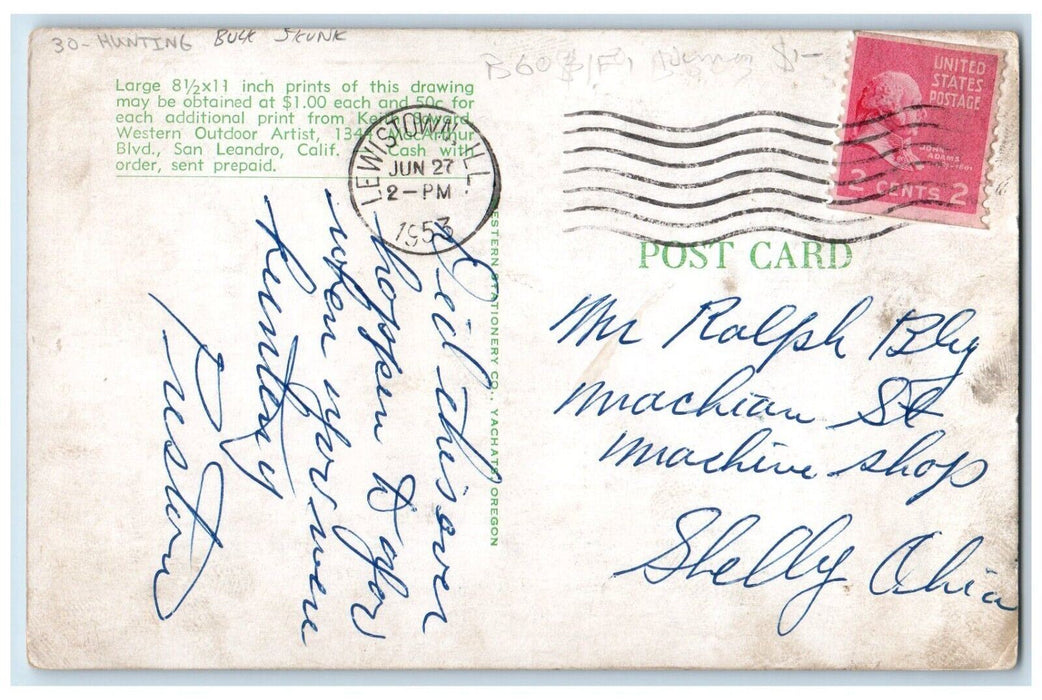 30- HUNTING BULK SKUNK
B60 $1
Large 8½x11 inch prints of this drawing
may be obtained at $1.00 each and 50c for
each additional print from Keith
Western Outdoor Artist, MacArthur
Blvd., San Leandro, Calif. Cash with
order, sent prepaid.
LEWISTOWN, ILL.
JUN 27
2-PM
1953
UNITED
STATES
POSTAGE
JOHN
ADAMS
2 CENTS 2
POST CARD
WESTERN STATIONERY CO., YACHATS, OREGON
Did this ever
happen to you
when you were
Hunting
Preston
Mr Ralph Bly
Machian St
Machine shop
Shelly Ohio